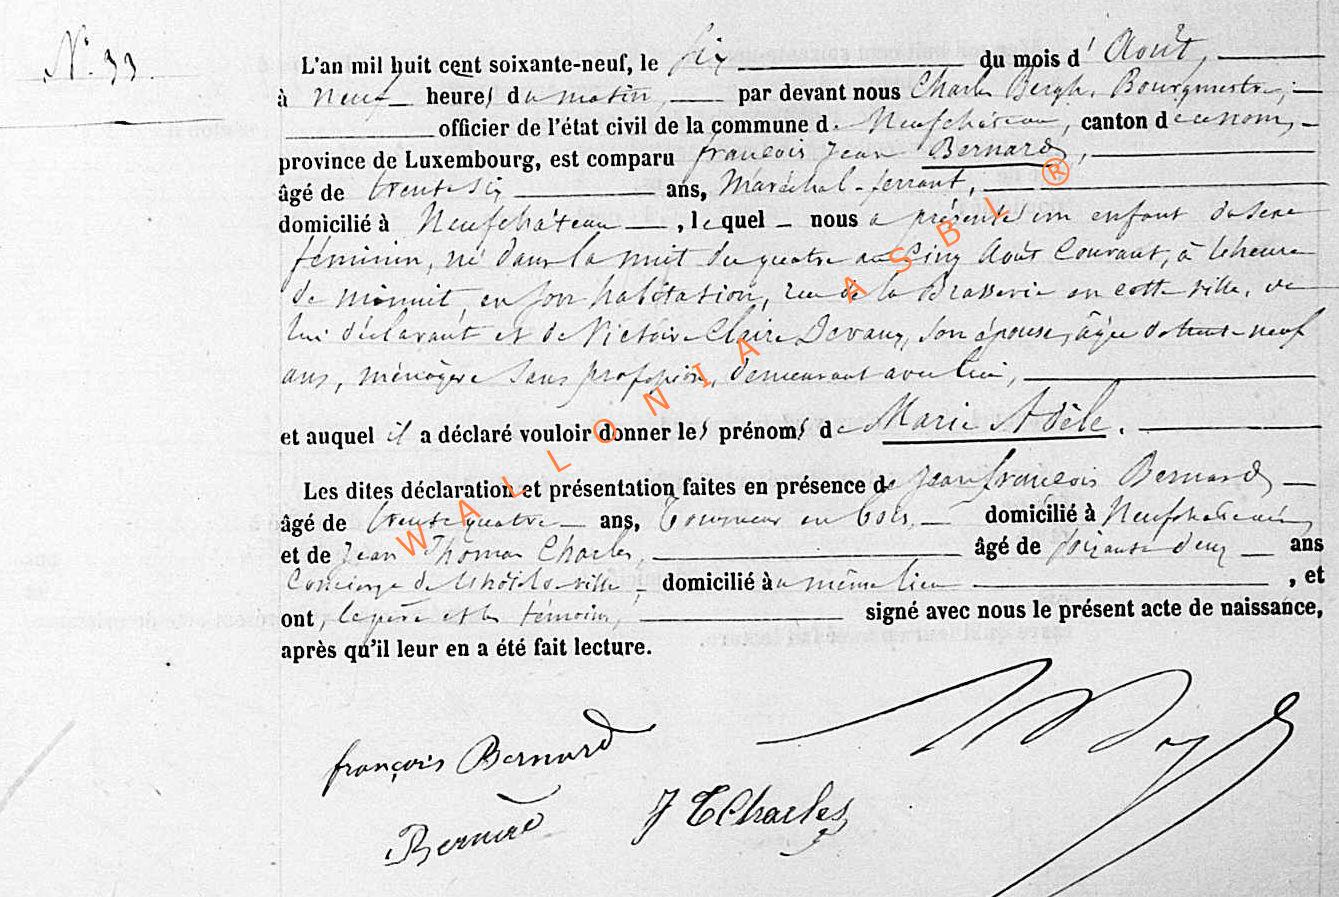 N.° 33.
L'an mil huit cent soixante-neuf, le six du mois d'Août,
à neuf heures du matin, par devant nous Charles Bergh, Bourgmestre,
officier de l'état civil de la commune de Neufchâteau, canton de ce nom,
province de Luxembourg, est comparu françois Jean Bernard,
âgé de trente six ans, Maréchal-ferrant,
domicilié à Neufchâteau, lequel nous a présenté un enfant du sexe
féminin, né dans la nuit du quatre au Cinq Août Courant, à l'heure
de minuit, en son habitation, rue de la Brasserie en cette ville, de
lui déclarant et de Victoire Claire Devaux, son épouse, âgée de trente neuf
ans, ménagère sans profession, demeurant avec lui,
et auquel il a déclaré vouloir donner les prénoms de Marie Adèle.
Les dites déclaration et présentation faites en présence de Jean françois Bernard
âgé de trente quatre ans, Tourneur en bois, domicilié à Neufchâteau,
et de Jean Thomas Charles, âgé de soixante deux ans
Concierge de l'hôtel de ville, domicilié au même lieu, et
ont, le père et les témoins, signé avec nous le présent acte de naissance,
après qu'il leur en a été fait lecture.
françois Bernard
Bernard
J T Charles
WALLONIA ASBL ®